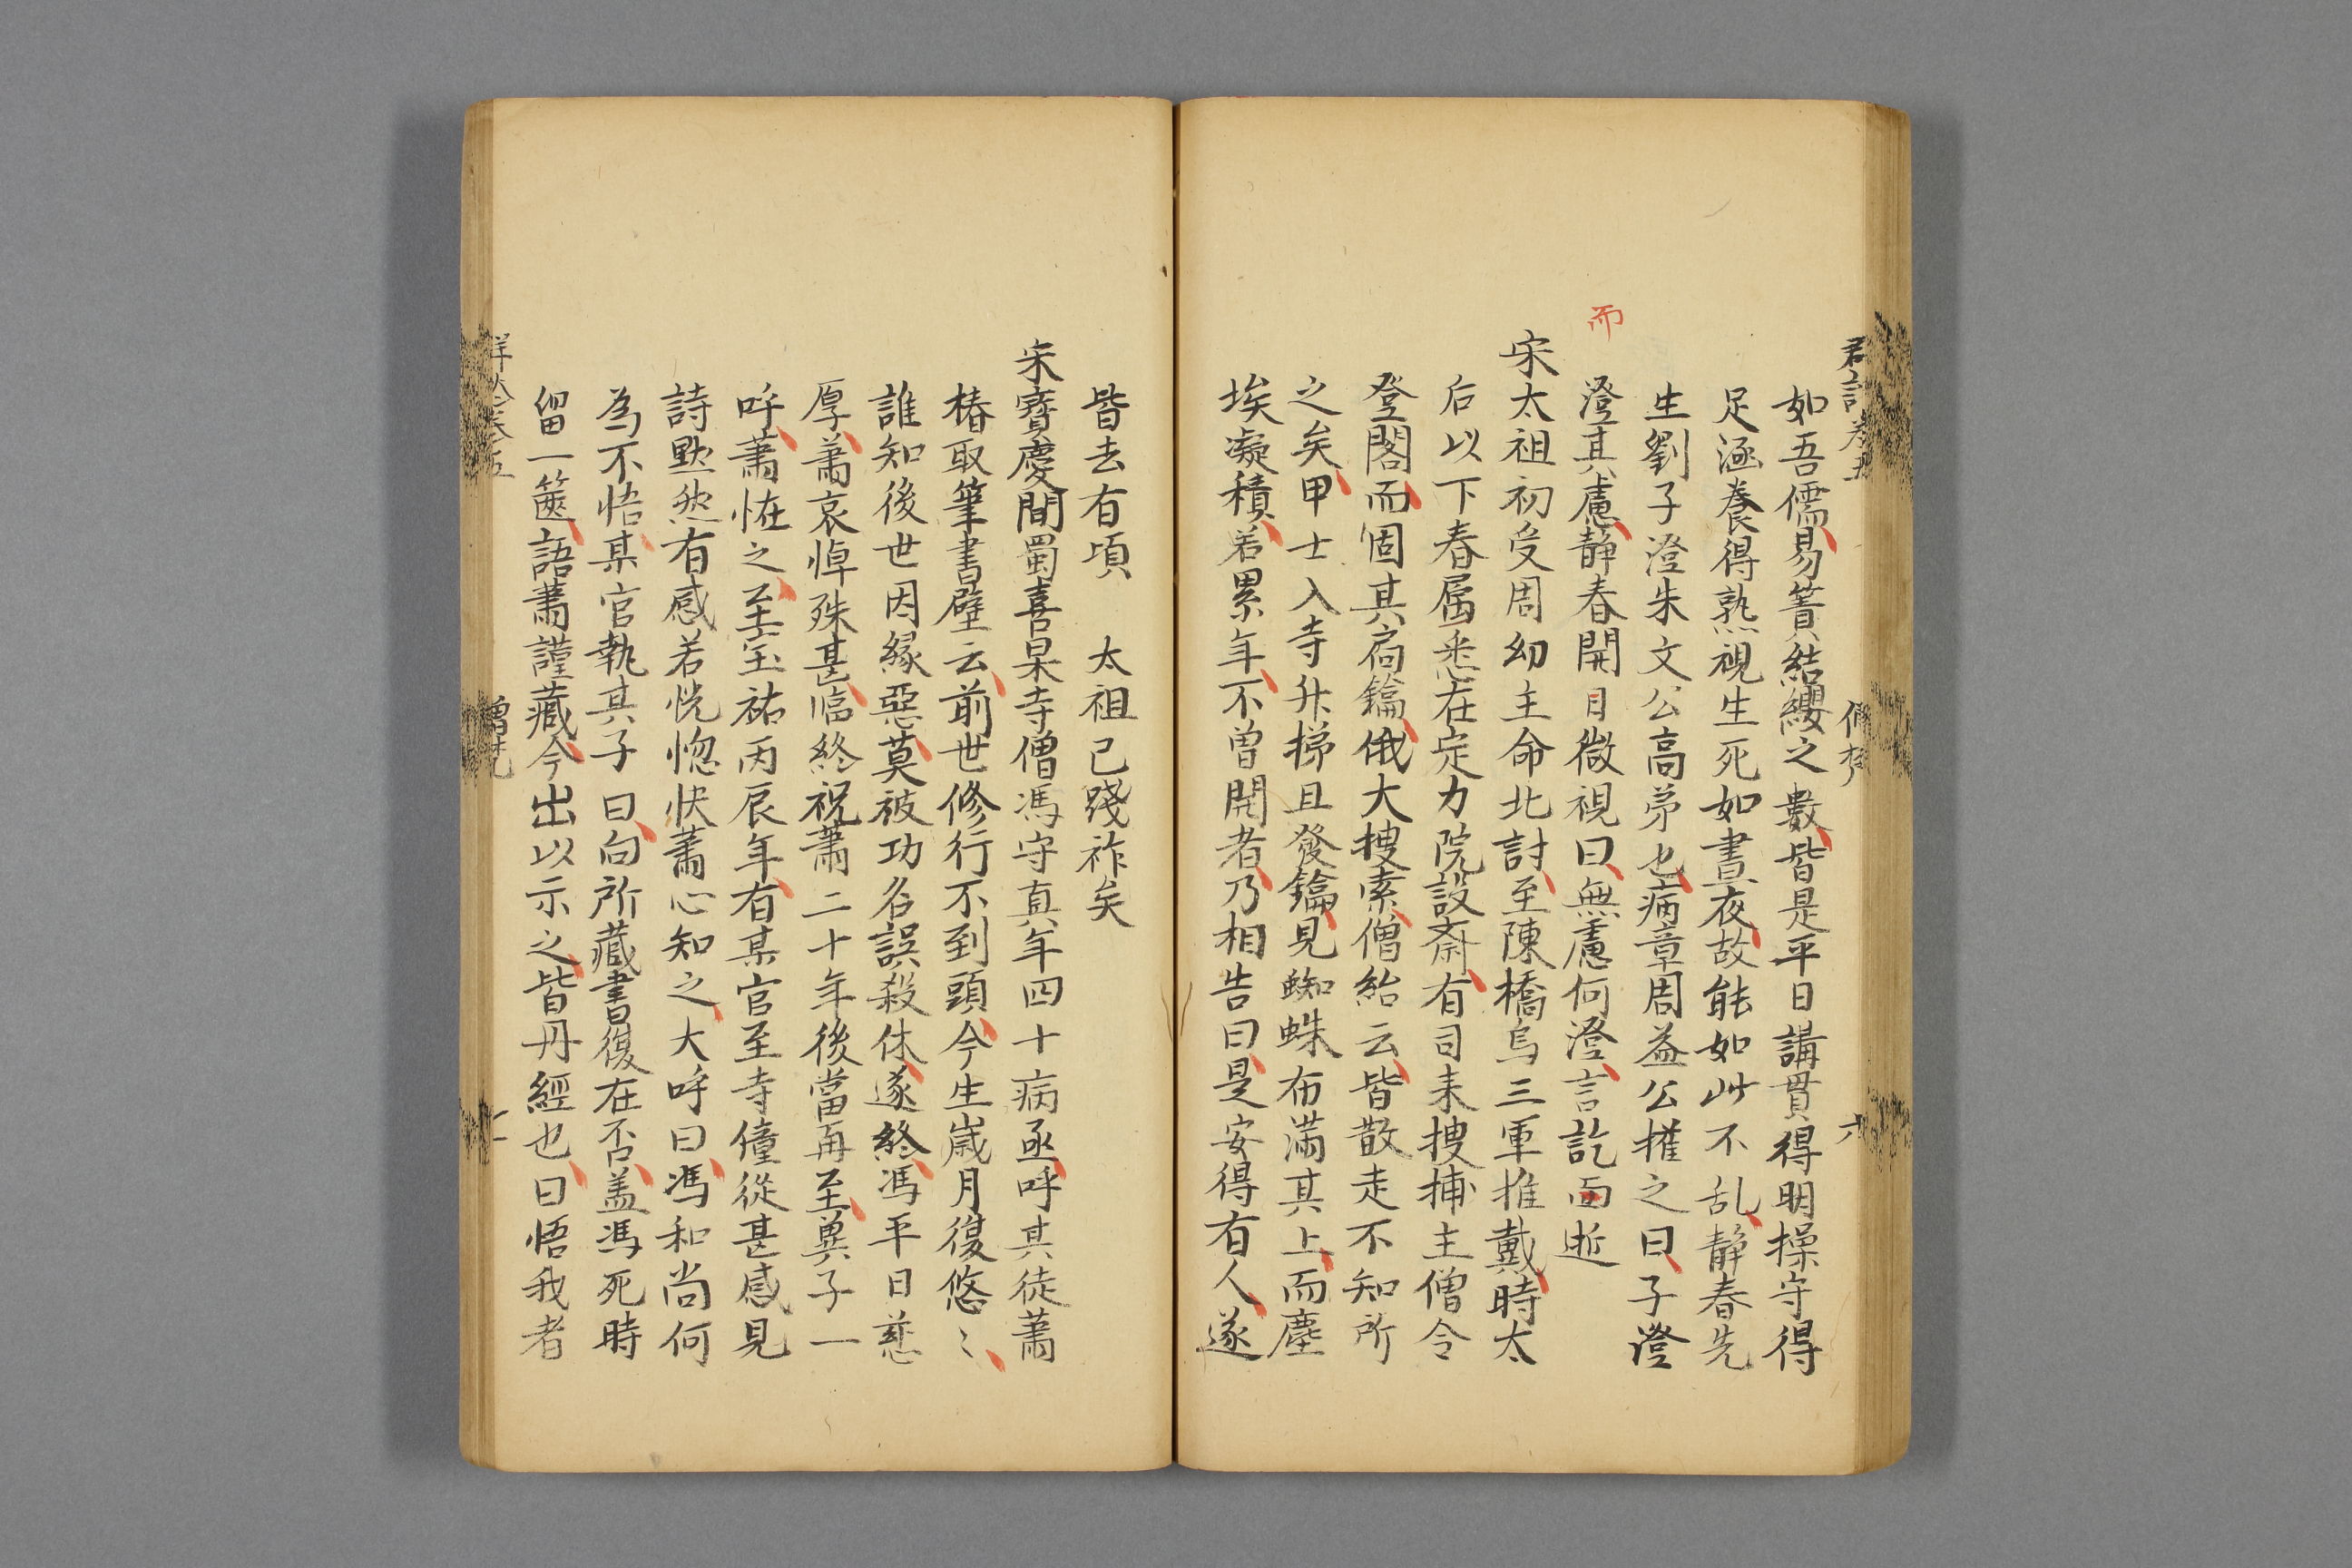 如吾儒易簀結纓之數皆是平日講貫得明操守得
足涵養得熟視生死如晝夜故能如此不乱靜春先
生劉子澄朱文公高弟也病章周益公擢之曰子澄
而
澄其慮靜春開目微視曰無慮何澄言訖面逝
宋太祖初受周幼主命北討至陳橋烏三軍推戴時太
后以下眷屬悉在定力院設斎有司来搜捕主僧令
登閣而固其扃鑰俄大搜索僧紿云皆散走不知所
之矣甲士入寺升梯且發鑰見蜘蛛布滿其上而塵
埃凝積若累年不曽開者乃相告曰是安得有人遂
皆去有頃 太祖已踐祚矣
宋寶慶間蜀喜杲寺僧馮守真年四十病亟呼其徒蕭
椿取筆書壁云前世修行不到頭今生歲月復悠〻
誰知後世因緣惡莫被功名誤殺休遂終馮平日慈
厚蕭哀悼殊甚臨終祝蕭二十年後當再至冀子一
呼蕭恠之至宝祐丙辰年有某官至寺僮從甚感見
詩默然有感若恍惚状蕭心知之大呼曰馮和尚何
為不悟某官執其子曰向所藏書復在否盖馮死時
留一篋語蕭謹藏今出以示之皆丹經也曰悟我者